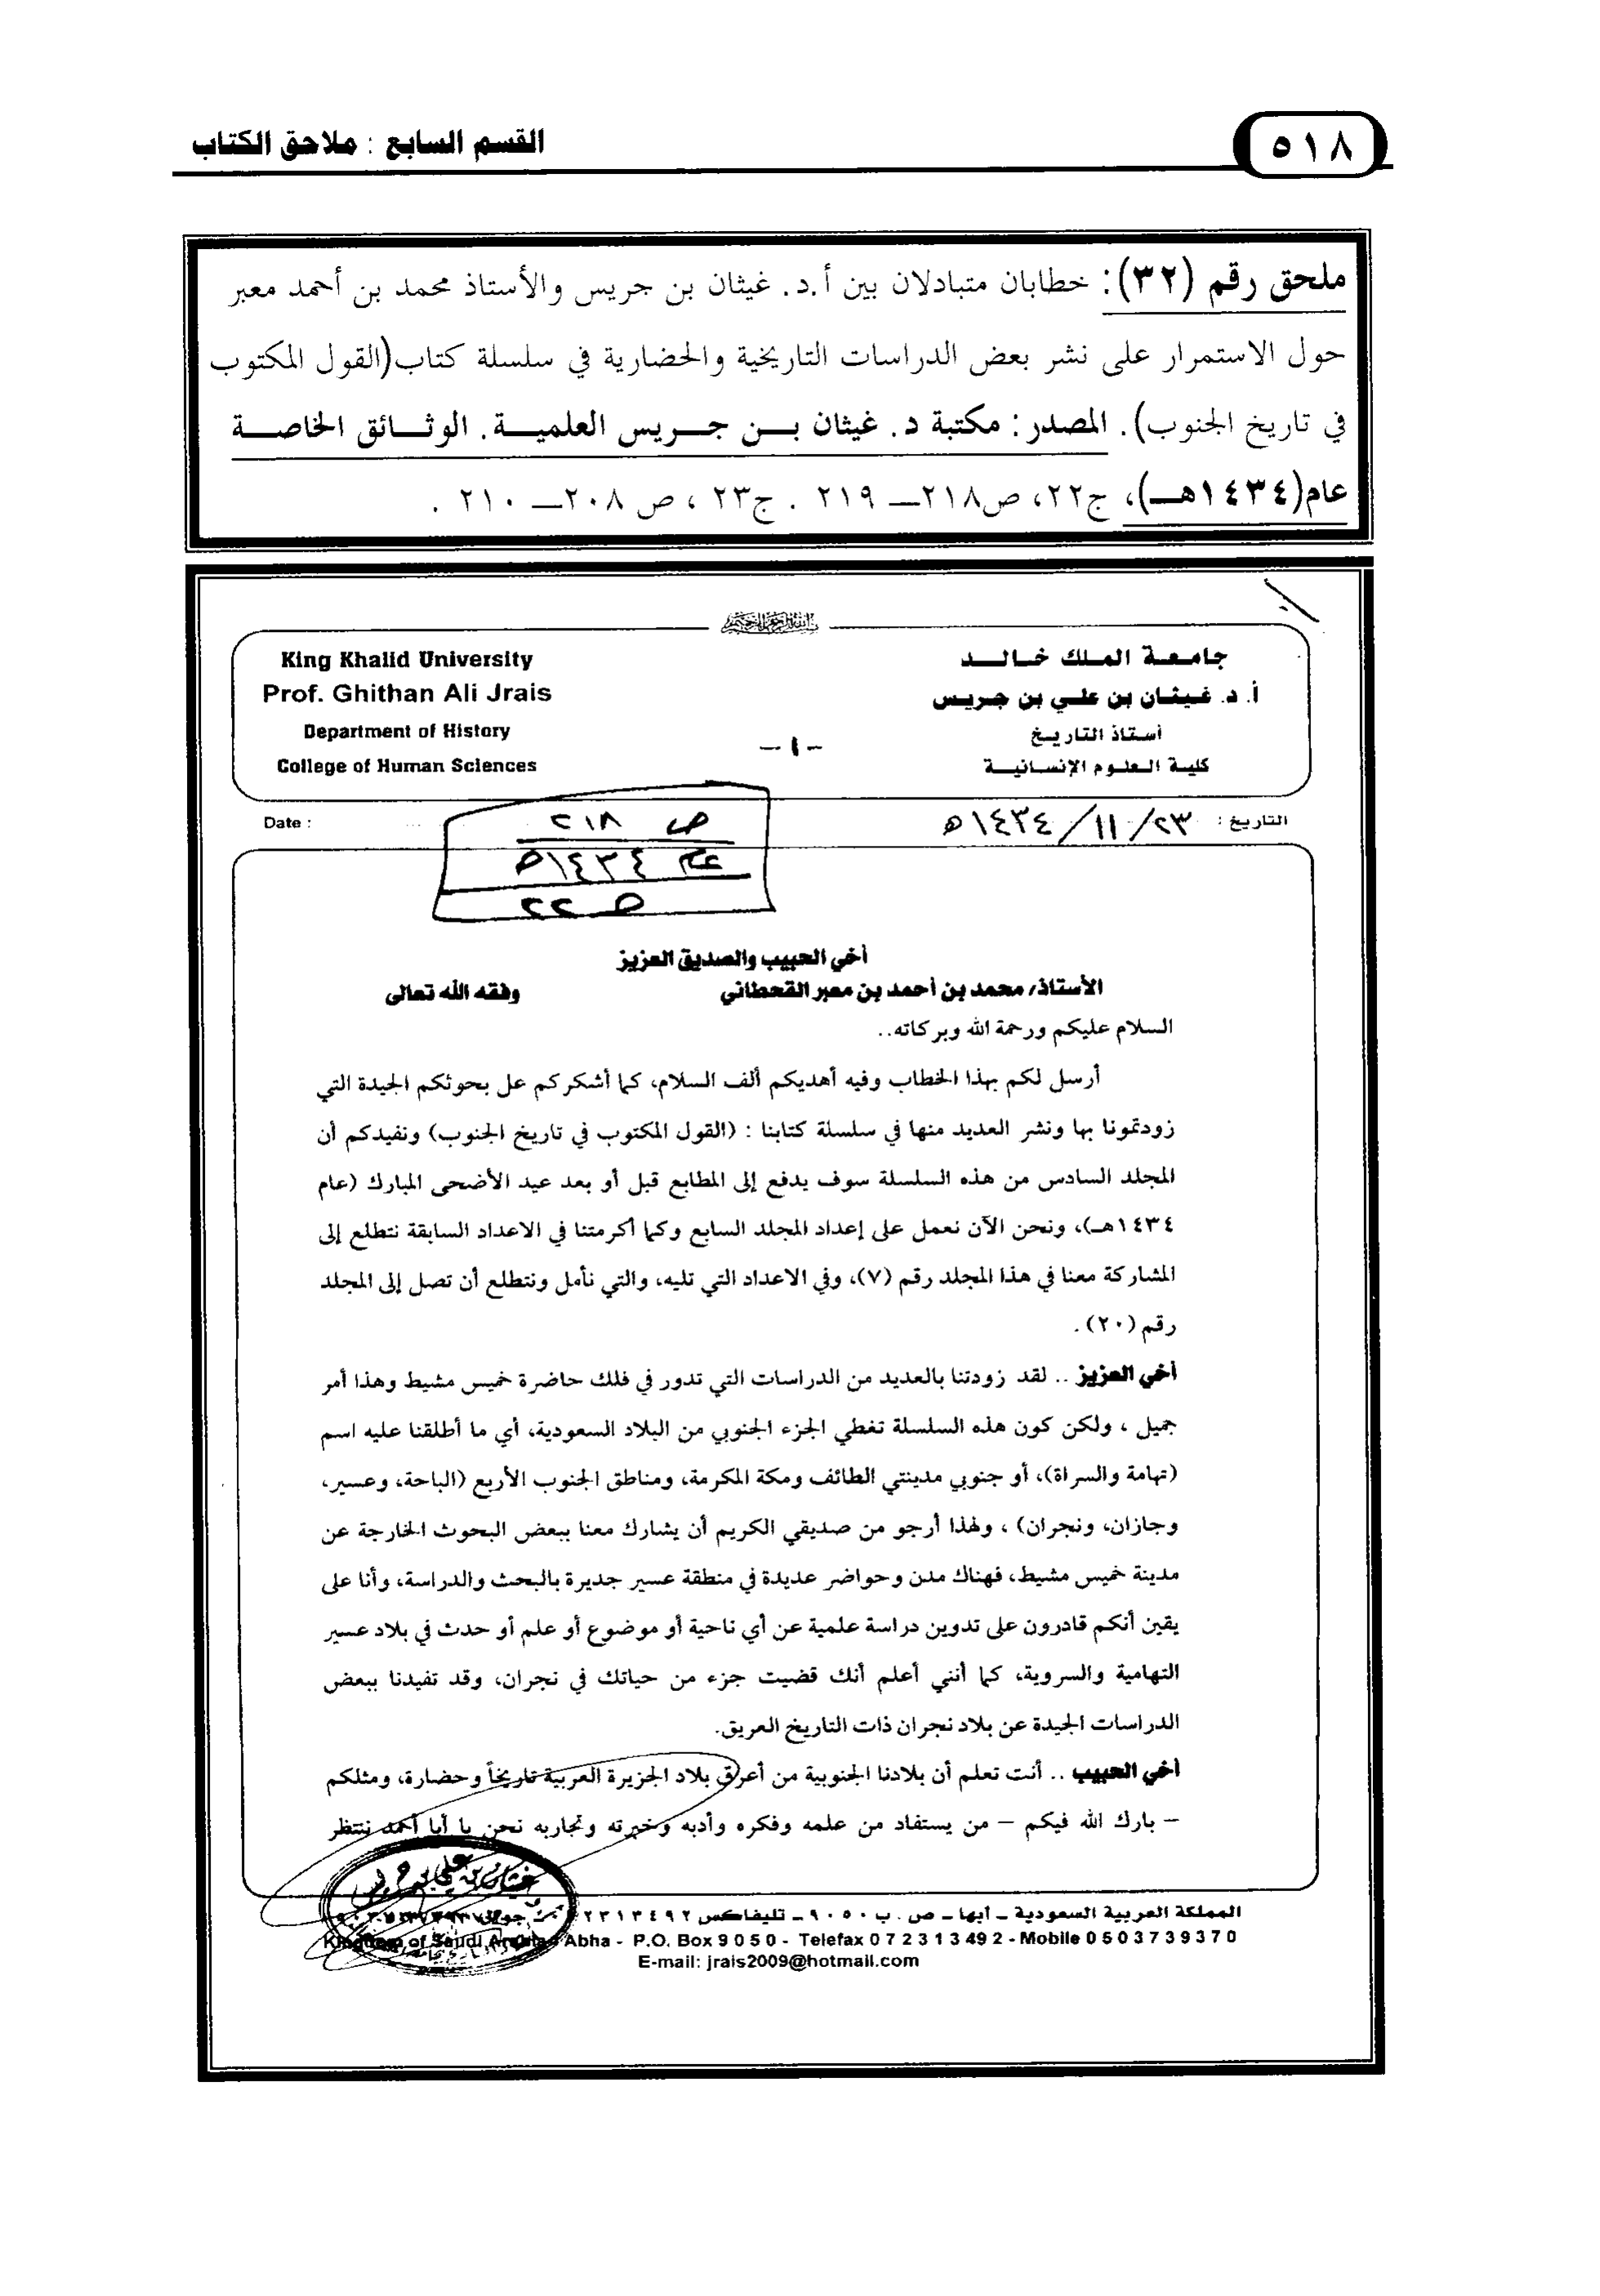 القسم السابع : ملاحق الكتاب
٥١٨
ملحق رقم (٣٢): خطابان متبادلان بين أ.د. غيثان بن جريس والأستاذ محمد بن أحمد معبر
حول الاستمرار على نشر بعض الدراسات التاريخية والحضارية في سلسلة كتاب(القول المكتوب
في تاريخ الجنوب). المصدر: مكتبة د. غيثان بن جريس العلمية. الوثائق الخاصة
عام(١٤٣٤هـ)، ج٢٢، ص٢١٨– ٢١٩ . ج٢٣ ، ص ٢٠٨– ٢١٠ .
بسم الله الرحمن الرحيم
جامعة الملك خالد
أ. د. غيثان بن علي بن جريس
أستاذ التاريخ
كلية العلوم الإنسانية
-١-
King Khalid University
Prof. Ghithan Ali Jrais
Department of History
College of Human Sciences
التاريخ : ٢٣/ ١١/ ١٤٣٤ه
Date :
ص ٢١٨
عام ١٤٣٤ه
٢٢
أخي الحبيب والصديق العزيز
الأستاذ/ محمد بن أحمد بن معبر القحطاني وفقه الله تعالى
السلام عليكم ورحمة الله وبركاته..
أرسل لكم بهذا الخطاب وفيه أهديكم ألف السلام، كما أشكركم عل بحوثكم الجيدة التي
زودتمونا بها ونشر العديد منها في سلسلة كتابنا : (القول المكتوب في تاريخ الجنوب) ونفيدكم أن
المجلد السادس من هذه السلسلة سوف يدفع إلى المطابع قبل أو بعد عيد الأضحى المبارك (عام
١٤٣٤هـ)، ونحن الآن نعمل على إعداد المجلد السابع وكما أكرمتنا في الاعداد السابقة نتطلع إلى
المشاركة معنا في هذا المجلد رقم (٧)، وفي الاعداد التي تليه، والتي نأمل ونتطلع أن تصل إلى المجلد
رقم (٢٠) .
أخي العزيز .. لقد زودتنا بالعديد من الدراسات التي تدور في فلك حاضرة خميس مشيط وهذا أمر
جميل ، ولكن كون هذه السلسلة تغطي الجزء الجنوبي من البلاد السعودية، أي ما أطلقنا عليه اسم
(تهامة والسراة)، أو جنوبي مدينتي الطائف ومكة المكرمة، ومناطق الجنوب الأربع (الباحة، وعسير،
وجازان، ونجران) ، ولهذا أرجو من صديقي الكريم أن يشارك معنا ببعض البحوث الخارجة عن
مدينة خميس مشيط، فهناك مدن وحواضر عديدة في منطقة عسير جديرة بالبحث والدراسة، وأنا على
يقين أنكم قادرون على تدوين دراسة علمية عن أي ناحية أو موضوع أو علم أو حدث في بلاد عسير
التهامية والسروية، كما أنني أعلم أنك قضيت جزء من حياتك في نجران، وقد تفيدنا ببعض
الدراسات الجيدة عن بلاد نجران ذات التاريخ العريق.
أخي الحبيب .. أنت تعلم أن بلادنا الجنوبية من أعرق بلاد الجزيرة العربية تاريخاً وحضارة، ومثلكم
– بارك الله فيكم – من يستفاد من علمه وفكره وأدبه وخبرته وتجاربه نحن يا أبا أحمد ننتظر
غيثان بن علي بن جريس
المملكة العربية السعودية – أبها – ص . ب ٩٠٥٠ – تليفاكس ٠٧٢٣١٣٤٩٢ جوال
Kingdom of Saudi Arabia - Abha - P.O. Box 9 0 5 0 - Telefax 0 7 2 3 1 3 4 9 2 - Mobile 0 5 0 3 7 3 9 3 7 0
E-mail: jrais2009@hotmail.com